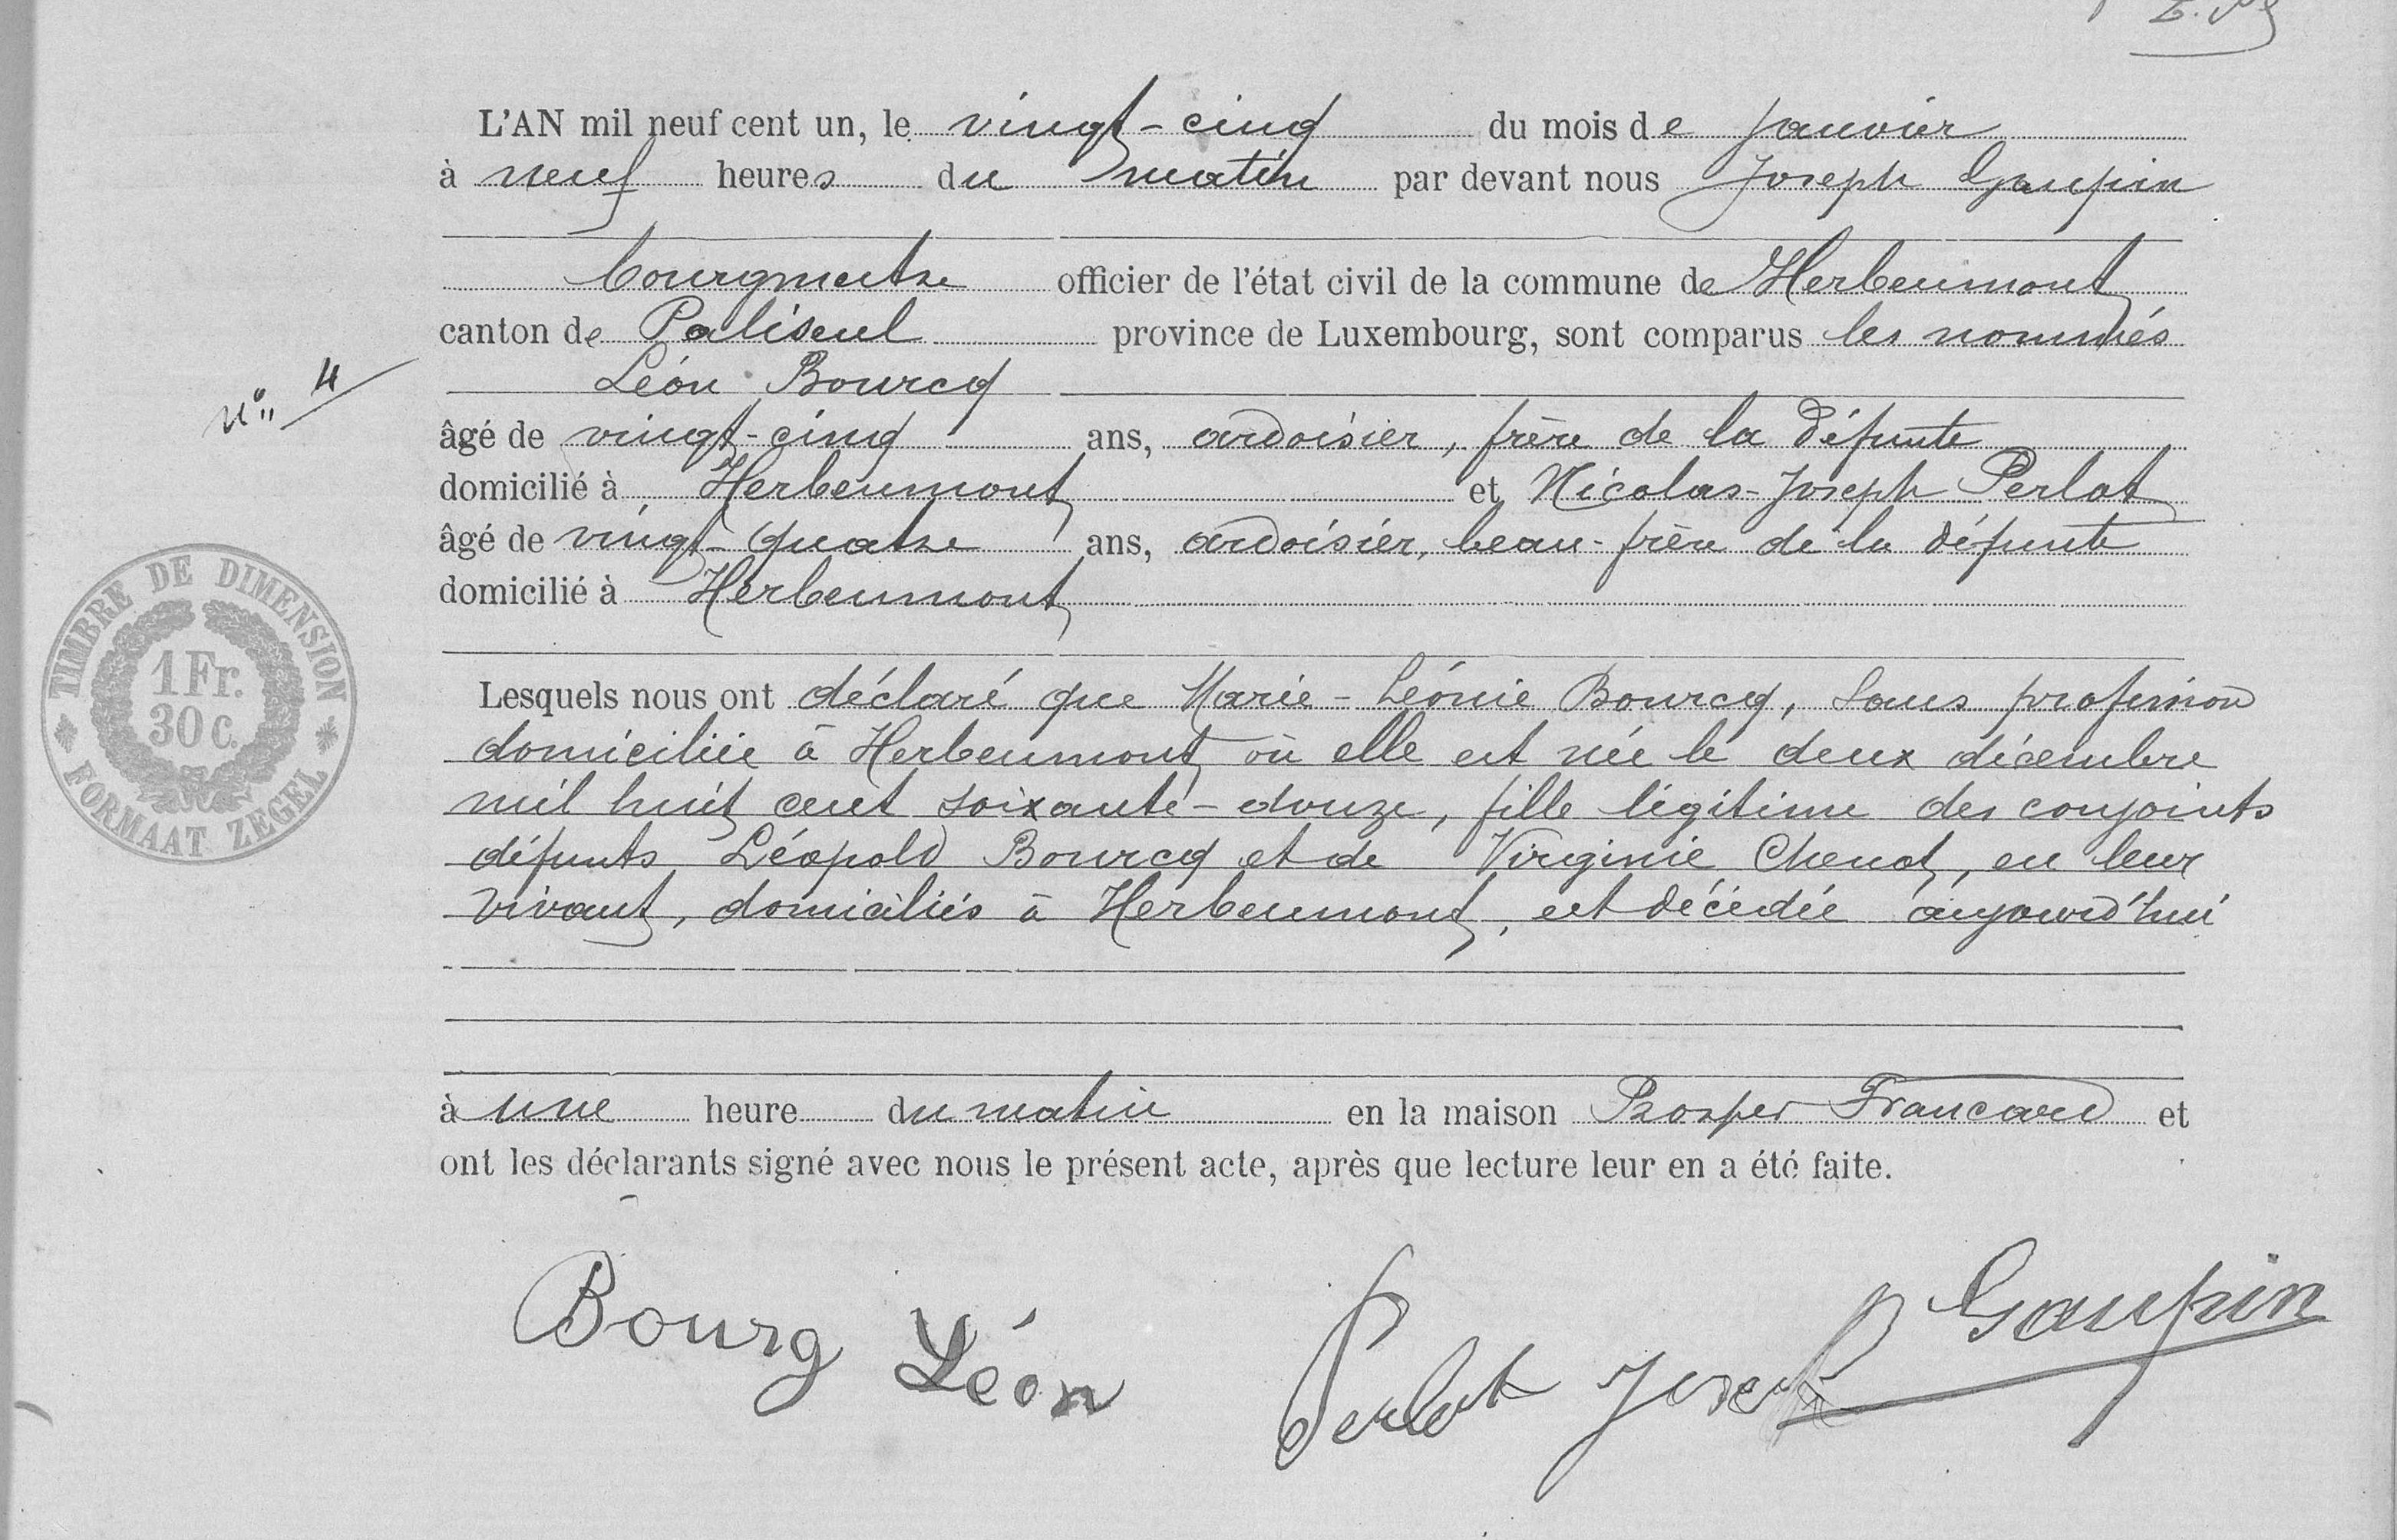 L'AN mil neuf cent un, le vingt-cinq du mois de janvier
à neuf heures du matin par devant nous Joseph Gaupin
bourgmestre officier de l'état civil de la commune de Herbeumont
canton de Paliseul province de Luxembourg, sont comparus les nommés
Léon Bourcq
N° 4
âgé de vingt-cinq ans, ardoisier, frère de la défunte
domicilié à Herbeumont et Nicolas-Joseph Perlot
âgé de vingt-quatre ans, ardoisier, beau-frère de la défunte
domicilié à Herbeumont
TIMBRE DE DIMENSION
1 Fr.
30 c.
FORMAAT ZEGEL
Lesquels nous ont déclaré que Marie-Léonie Bourcq, sans profession
domiciliée à Herbeumont où elle est née le deux décembre
mil huit cent soixante-douze, fille légitime des conjoints
défunts Léopold Bourcq et de Virginie Chenot, en leur
vivant, domiciliés à Herbeumont, est décédée aujourd'hui
à une heure du matin en la maison Prosper Francard et
ont les déclarants signé avec nous le présent acte, après que lecture leur en a été faite.
Bourg Léon
Perlot Joseph
Gaupin